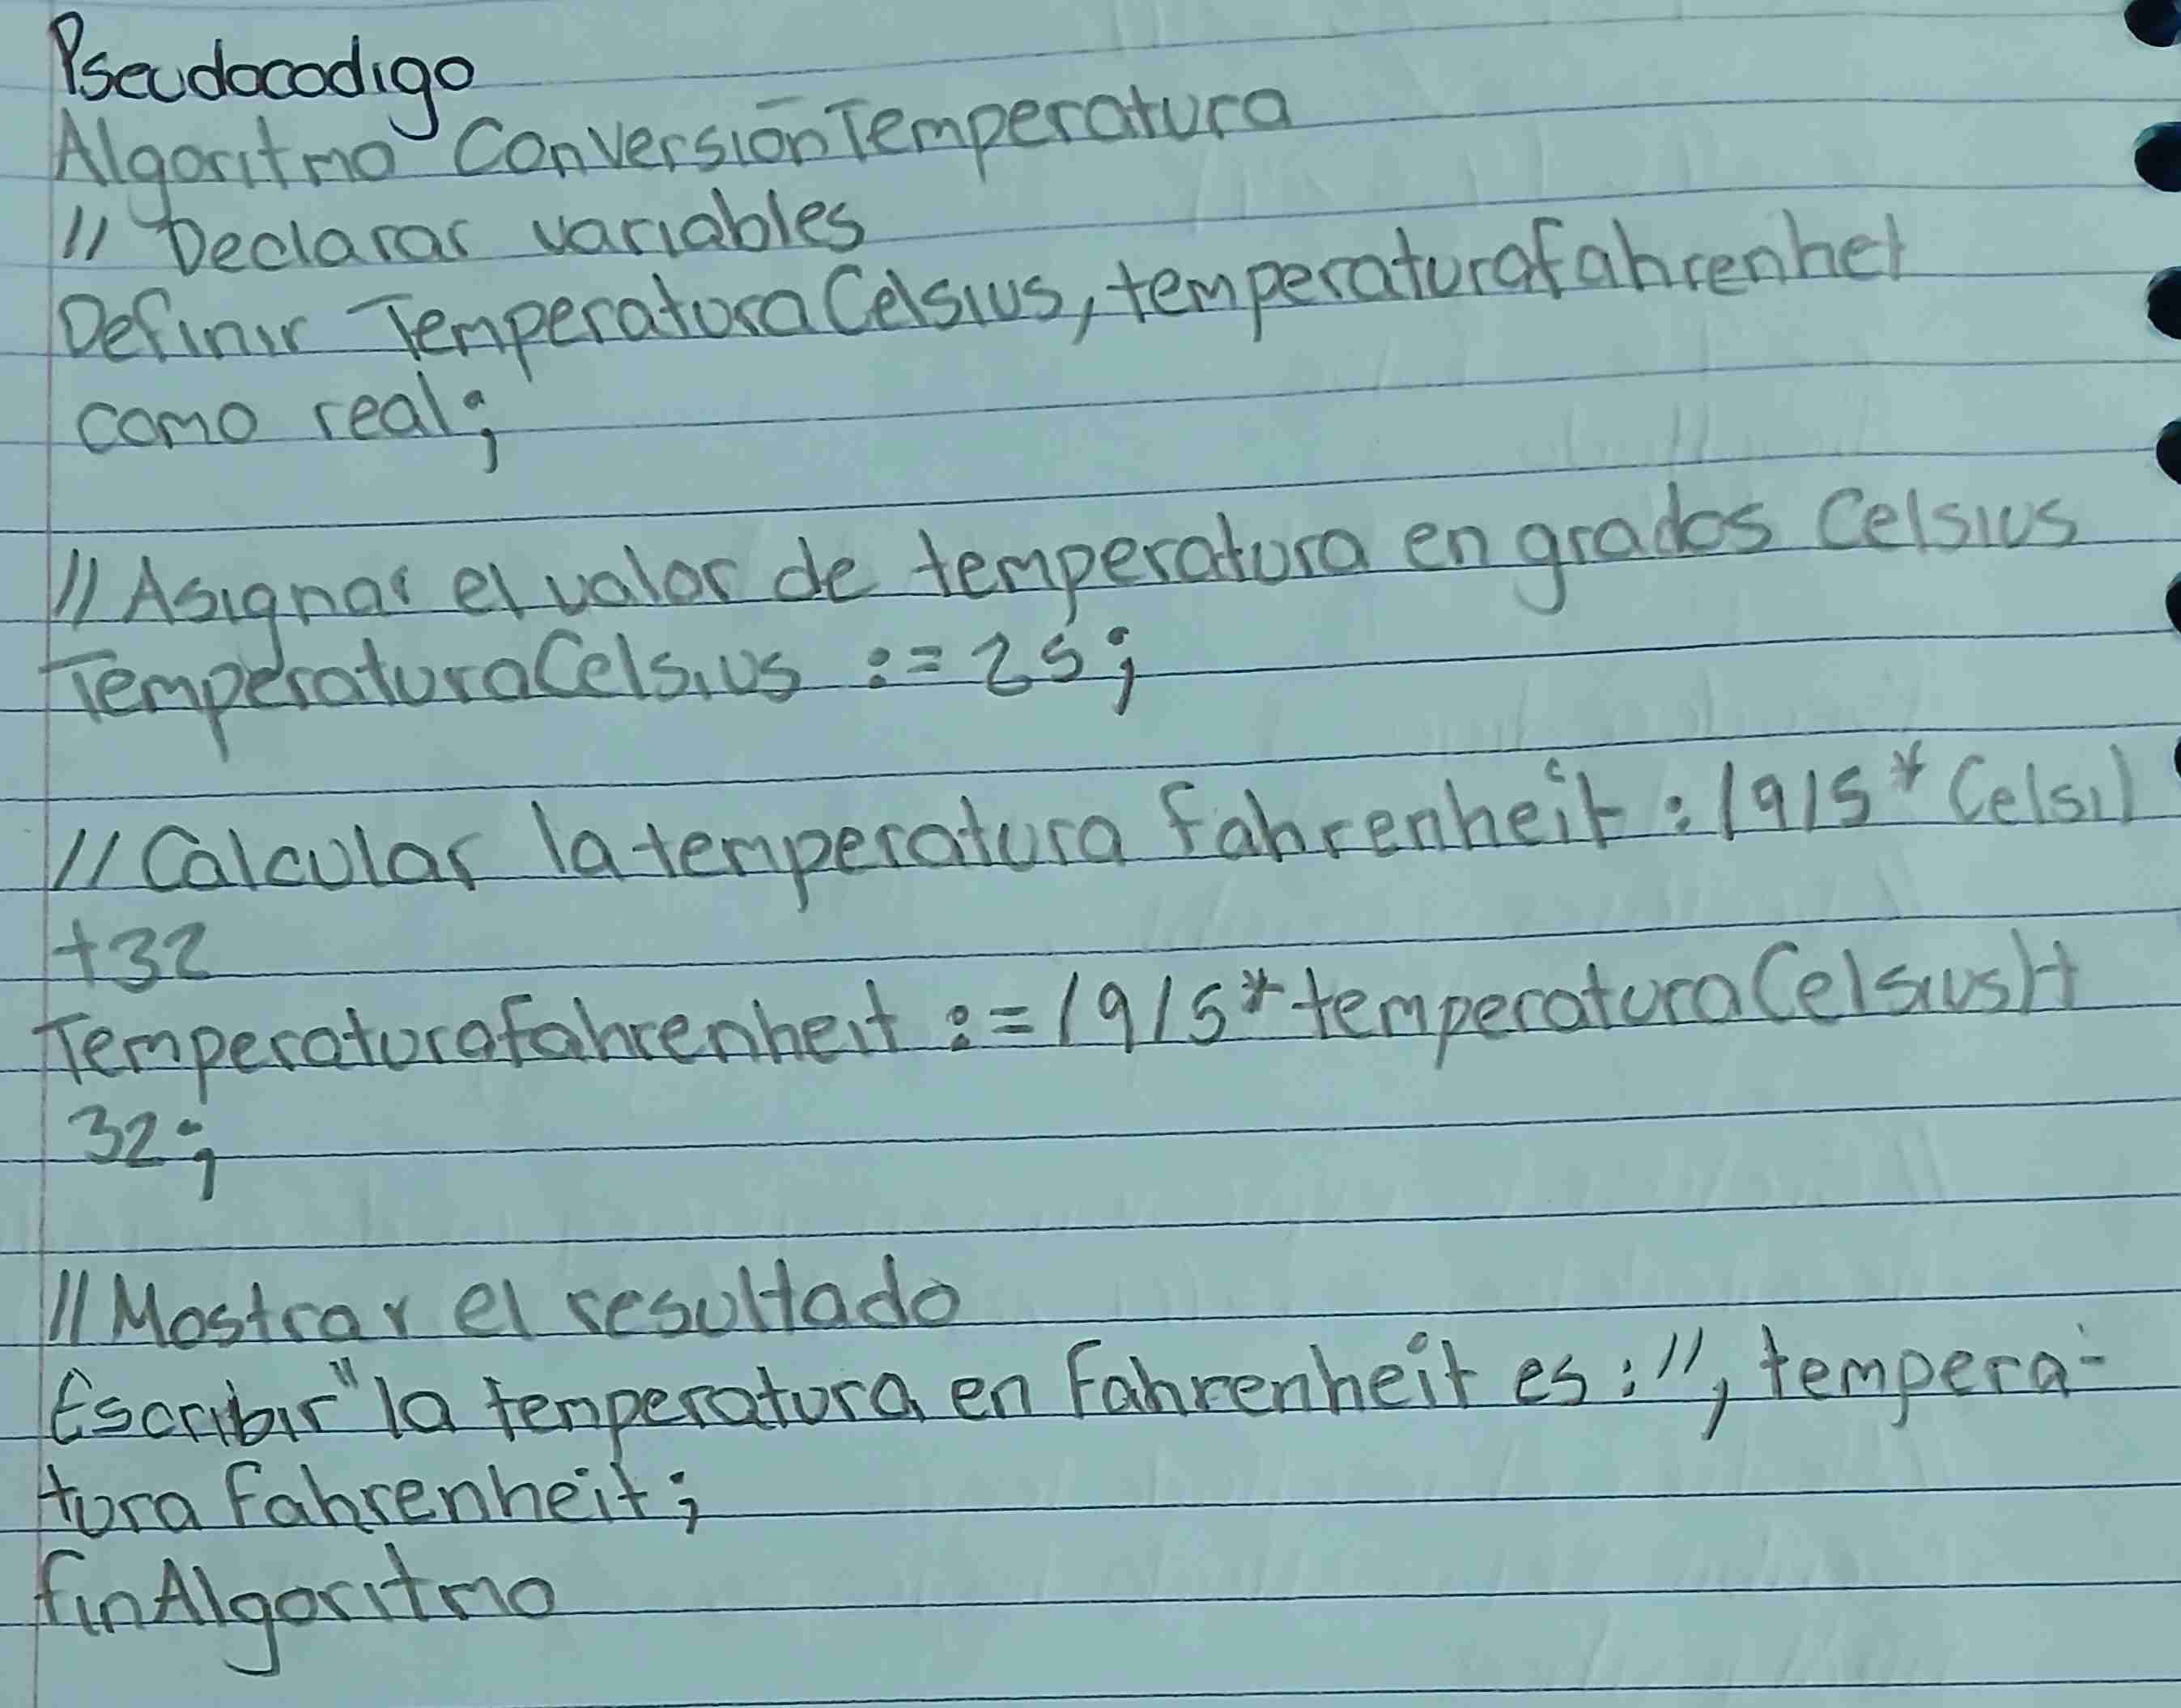 Pseudocodigo
Algoritmo ConversiónTemperatura
// Declarar variables
Definir TemperaturaCelsius, temperaturafahrenhet
como real;
// Asignar el valor de temperatura en grados Celsius
TemperaturaCelsius := 25;
// Calcular la temperatura fahrenheit : (9/5 * Celsi)
+32
Temperaturafahrenheit := (9/5 * temperaturaCelsius)+
32;
// Mostrar el resultado
Escribir "la temperatura en Fahrenheit es : ", tempera-
tura Fahrenheit;
finAlgoritmo